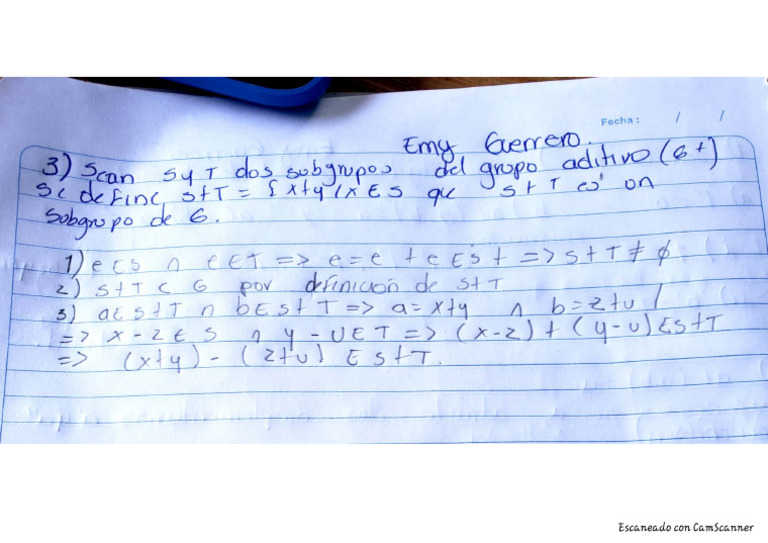 Fecha: / /
Emy Guerrero.
3) Sean S y T dos subgrupos del grupo aditivo (G +)
se define, S+T = {x+y / x ∈ S que S+T es un
subgrupo de G.
1) e ∈ S ∩ e ∈ T => e = e + e ∈ S + => S+T ≠ ∅
2) S+T ⊂ G por definición de S+T
3) a ∈ S+T ∩ b ∈ S+T => a = x+y ∩ b = z+u /
=> x - z ∈ S ∩ y - u ∈ T => (x-z) + (y-u) ∈ S+T
=> (x+y) - (z+u) ∈ S+T.
Escaneado con CamScanner